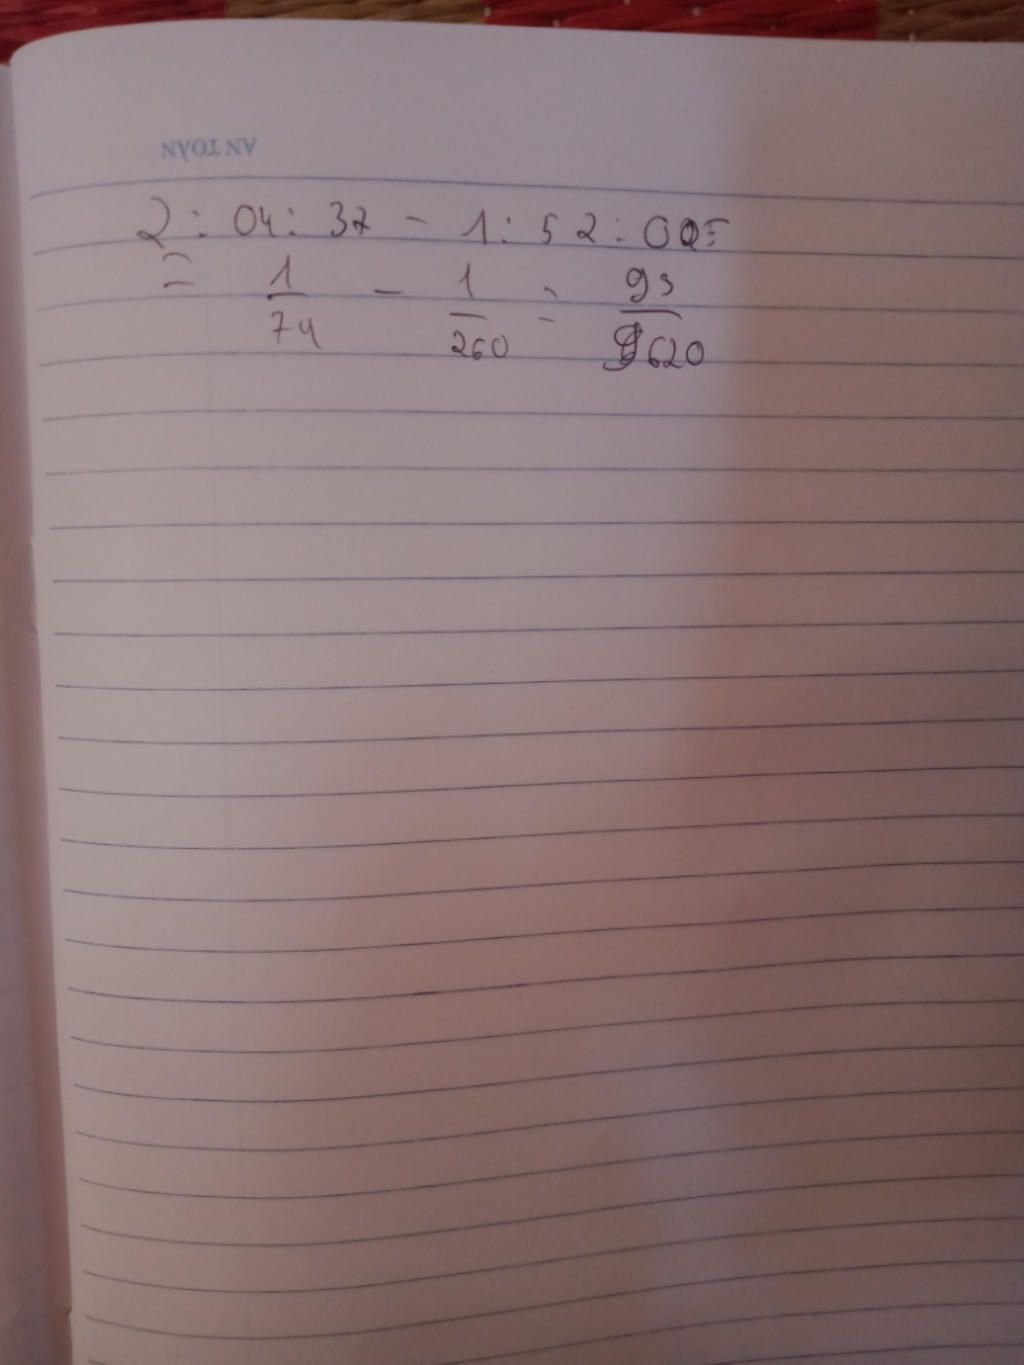 AN TOÀN
2 : 04 : 37 - 1 : 52 : 005
= 1/74 - 1/260 = 93/9620